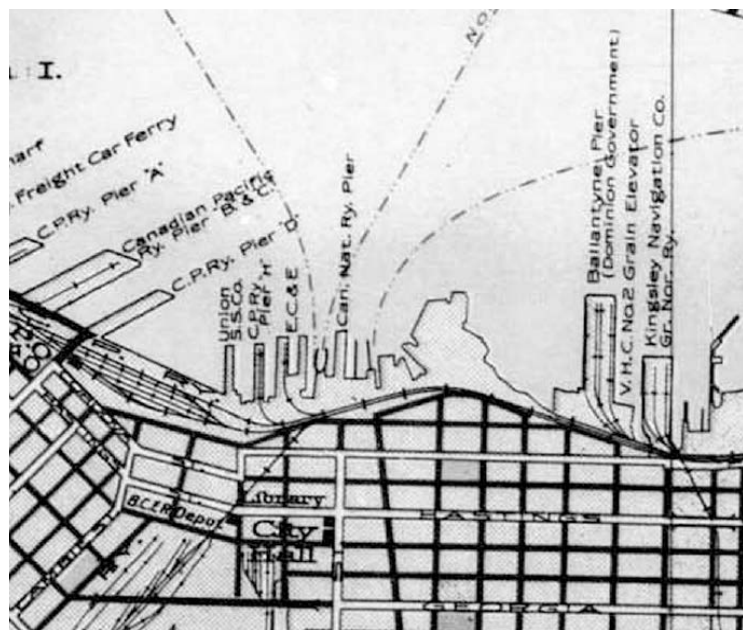 I.
Freight Car Ferry
C.P.Ry. Pier "A"
Canadian Pacific
Ry. Pier "B" & "C"
C.P.Ry. Pier "D"
Union
S.S.Co.
C.P.Ry.
Pier "H"
E.C.&E
Can. Nat. Ry. Pier
No.
Ballantyne Pier
(Dominion Government)
V.H.C. No2 Grain Elevator
Kingsley Navigation Co.
Gr. Nor. Ry.
B.C.E.R. Depot
Library
City
Hall
HASTINGS
GEORGIA